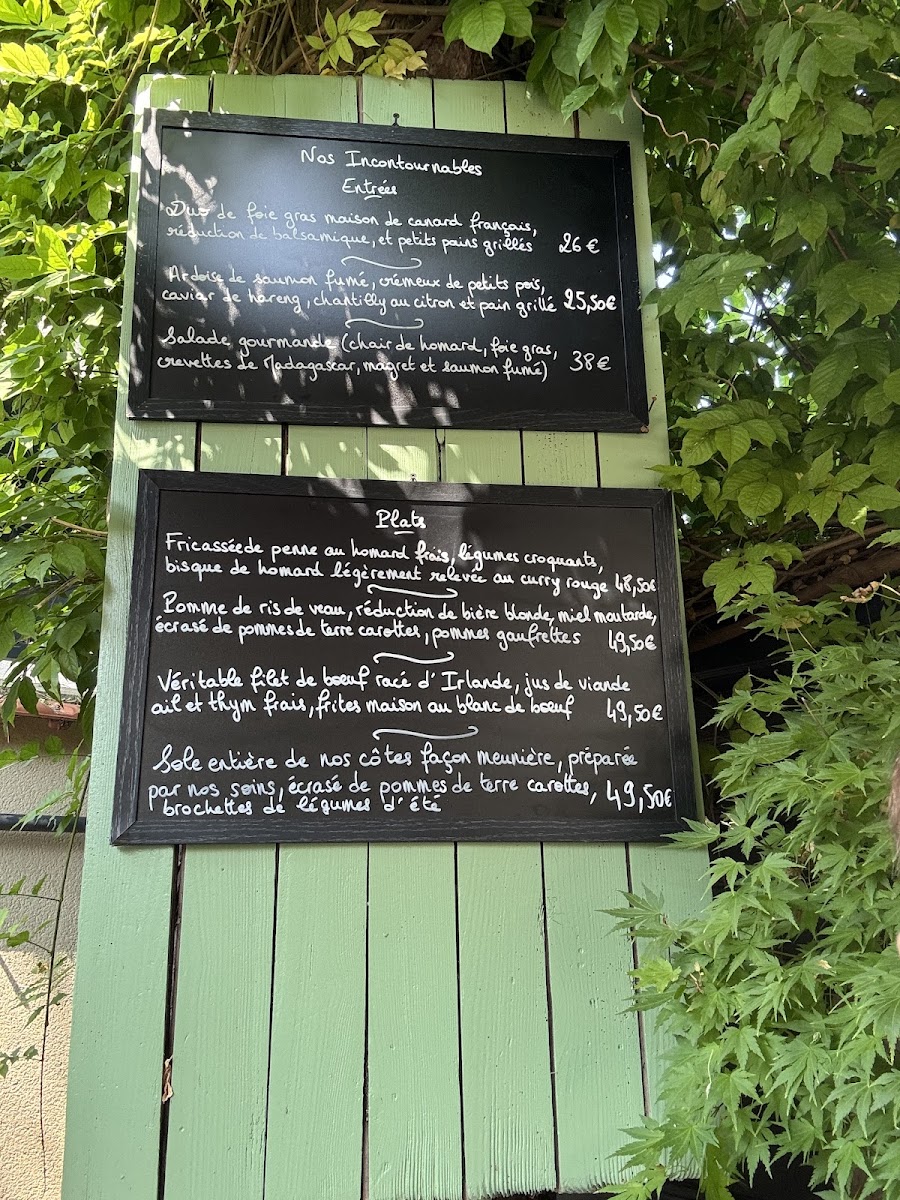 Nos Incontournables
Entrées
Duo de foie gras maison de canard français,
réduction de balsamique, et petits pains grillés 26 €
Ardoise de saumon fumé, crémeux de petits pois,
caviar de hareng, chantilly au citron et pain grillé 25,50€
Salade gourmande (chair de homard, foie gras,
crevettes de Madagascar, magret et saumon fumé) 38 €
Plats
Fricassée de penne au homard frais, légumes croquants,
bisque de homard légèrement relevée au curry rouge 48,50€
Pomme de ris de veau, réduction de bière blonde, miel moutarde,
écrasé de pommes de terre carottes, pommes gaufrettes 49,50€
Véritable filet de bœuf racé d'Irlande, jus de viande
ail et thym frais, frites maison au blanc de bœuf 49,50€
Sole entière de nos côtes façon meunière, préparée
par nos soins, écrasé de pommes de terre carottes, 49,50€
brochettes de légumes d'été